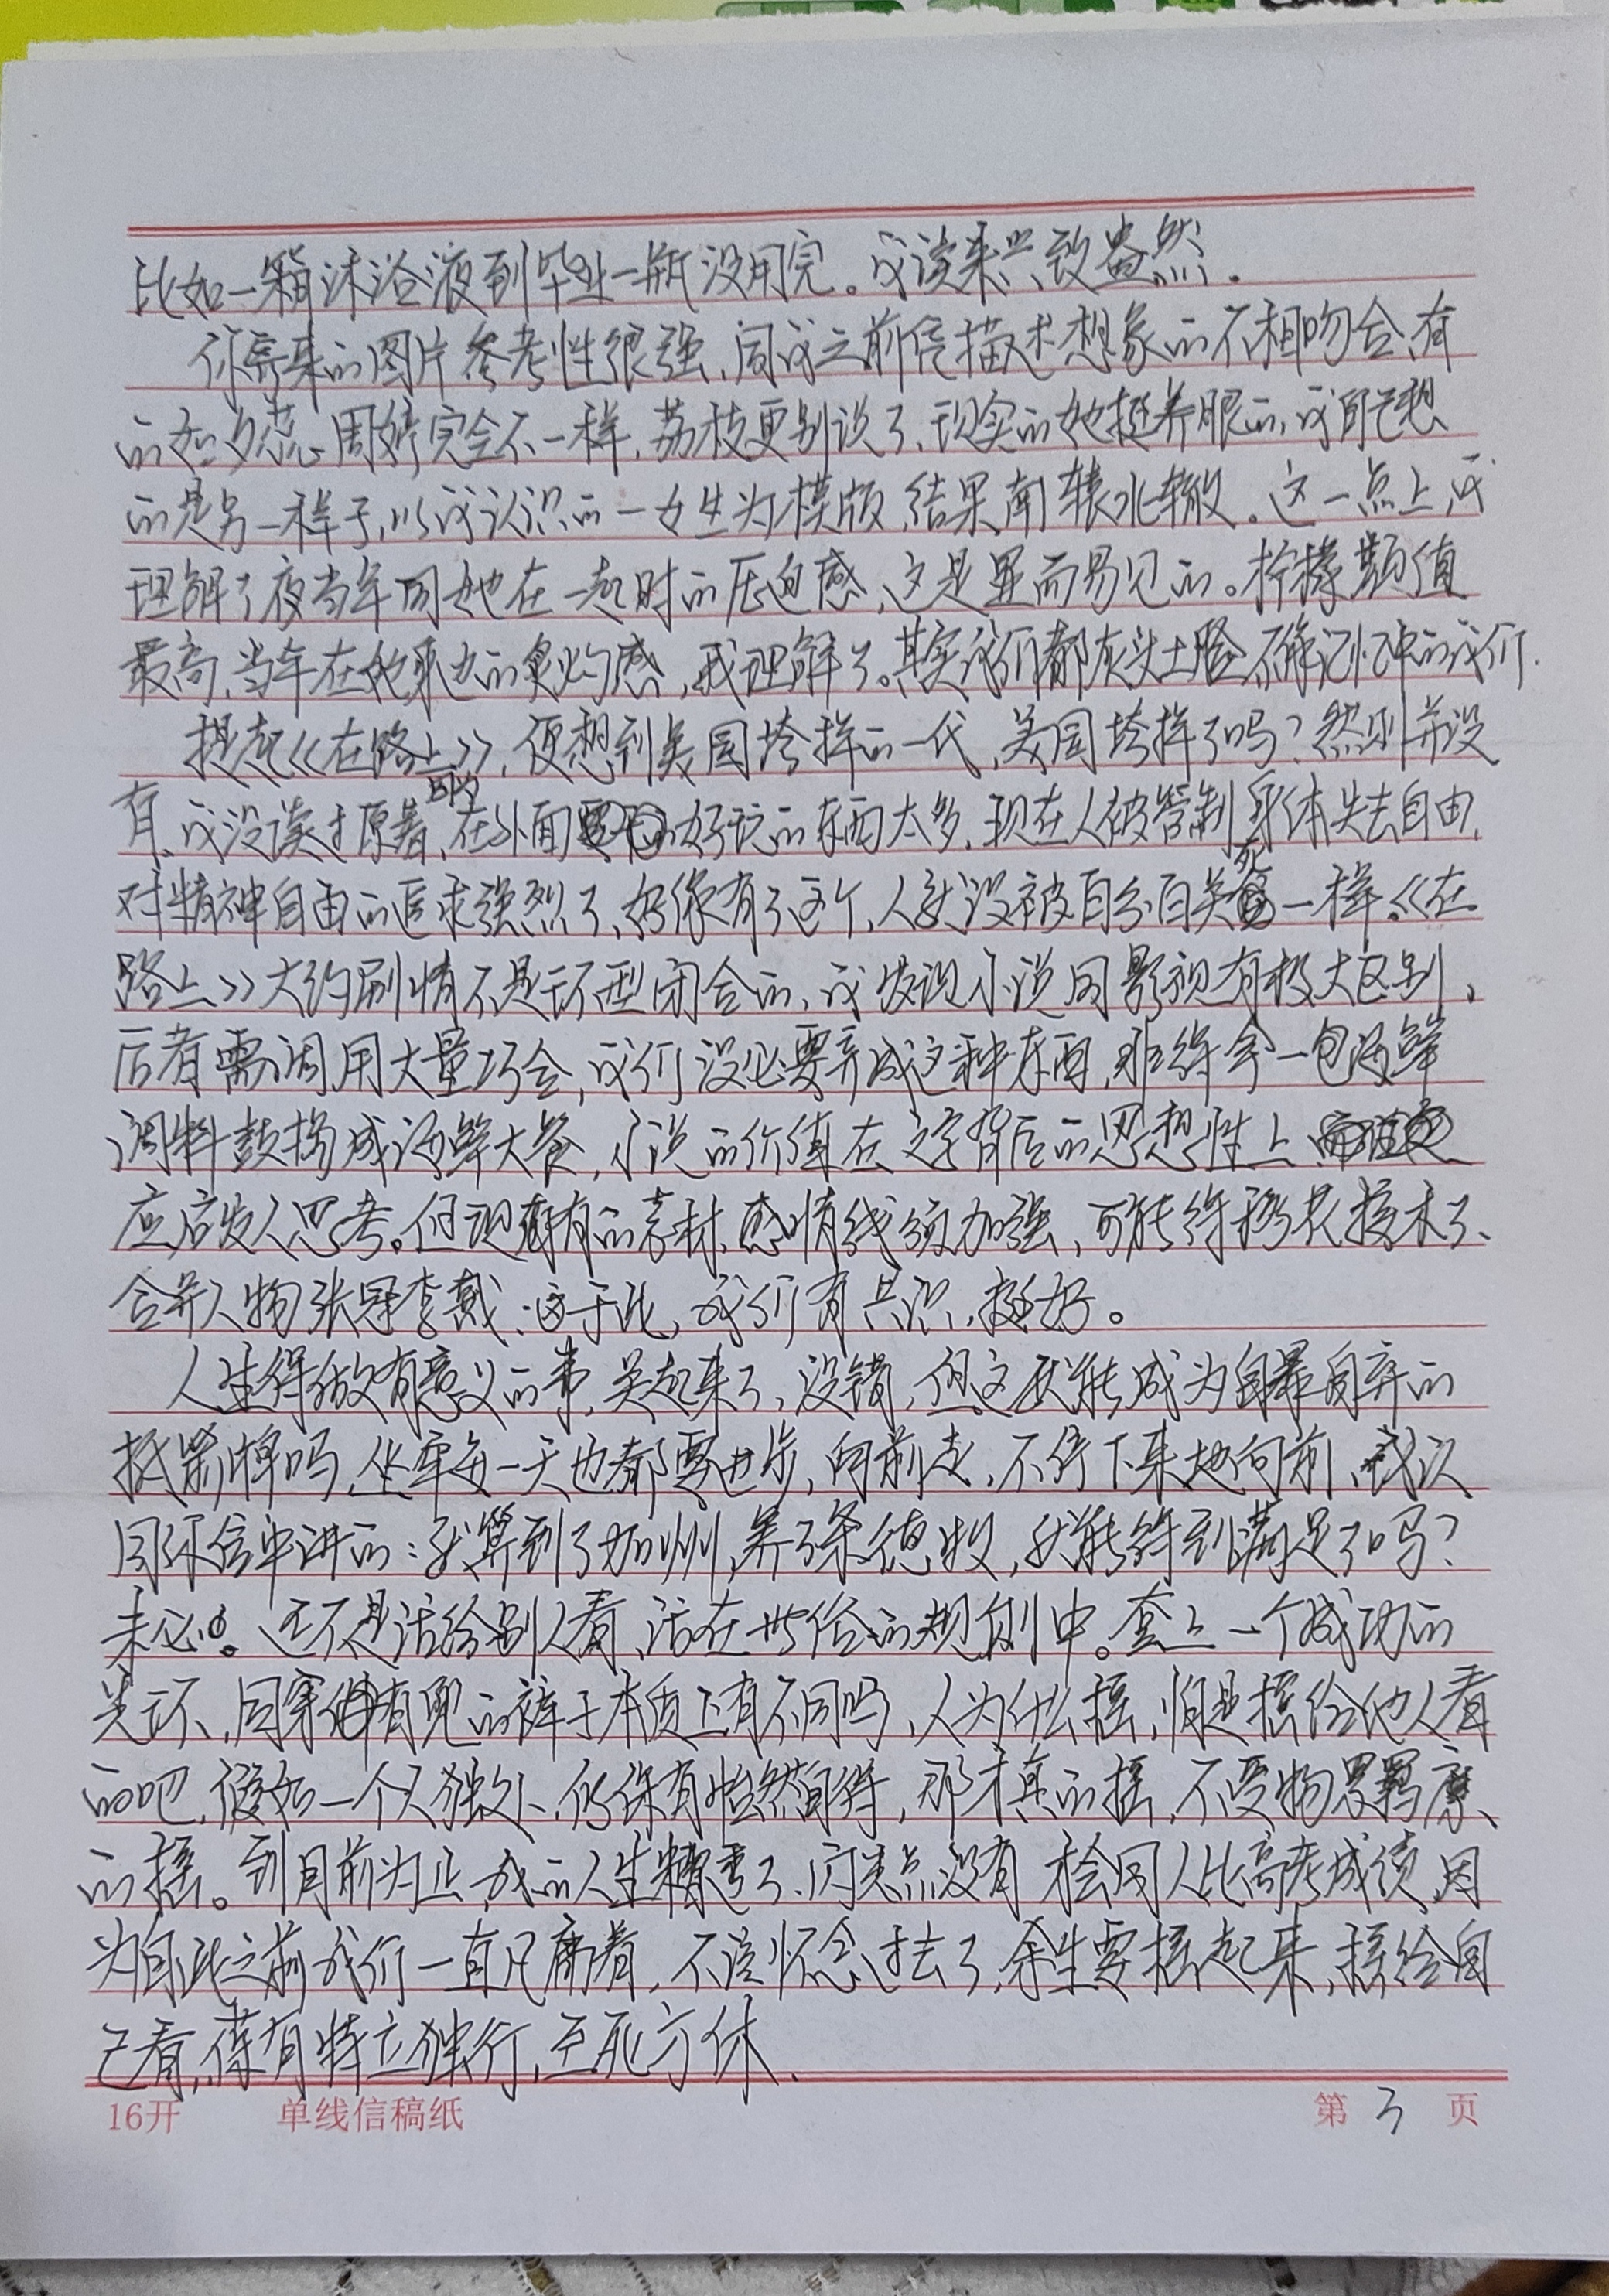 比如一箱沐浴液到毕业一瓶没用完。我读来兴致盎然。
你寄来的图片参考性很强,同我之前凭描述想象的不相吻合,有
的如 周婷完全不一样,荔枝更别说了,现实的她挺养眼的,我所想
的是另一样子,以我认识的一女生为模版,结果南辕北辙。这一点上,我
理解了夜当年同她在一起时的压迫感,这是显而易见的。柠檬颜值
最高,当年在他来也的灼感,我理解了。其实我们都灰头土脸,不像记忆中的我们.
提起《在路上》,便想到美国垮掉的一代,美国垮掉了吗?然则并没
有,我没读过原著,那时在外面好玩的东西太多,现在人被管制身体失去自由,
对精神自由的追求强烈了,好像有了这个,人就没被百分百关死一样。《在
路上》大约剧情不是环型闭合的,我发现小说同影视有极大区别,
后者需调用大量巧合,我们没必要弄成这种东西,非得拿一包海鲜
调料鼓捣成海鲜大餐,小说的价值在文字背后的思想性上
应启发人思考。但现有的素材,感情线须加强,可能得移花接木了、
合并人物张冠李戴,这于此,我们有共识,挺好。
人生得做有意义的事,关起来了,没错,但这就能成为自暴自弃的
抵箭牌吗,坐牢每一天也都要进步,向前走,不停下来地向前,我认
同你信中讲的:就算到了加州,养了条德牧,就能得到满足了吗?
未必。还不是活给别人看,活在世俗的规则中。套上一个成功的
光环,同穿有兜的裤子本质上有不同吗,人为什么摇,怕是摇给他人看
的吧,假如一个人独处,仍保有怡然自得,那才真的摇,不受物累羁縻
的摇。到目前为止,我的人生糟透了,闪光点没有 才会同人比高考成绩,因
为自此之前我们一直凡庸着,不该怀念过去了,余生要摇起来,摇给自
己看,葆有特立独行,至死方休、
16开 单线信稿纸 第 3 页